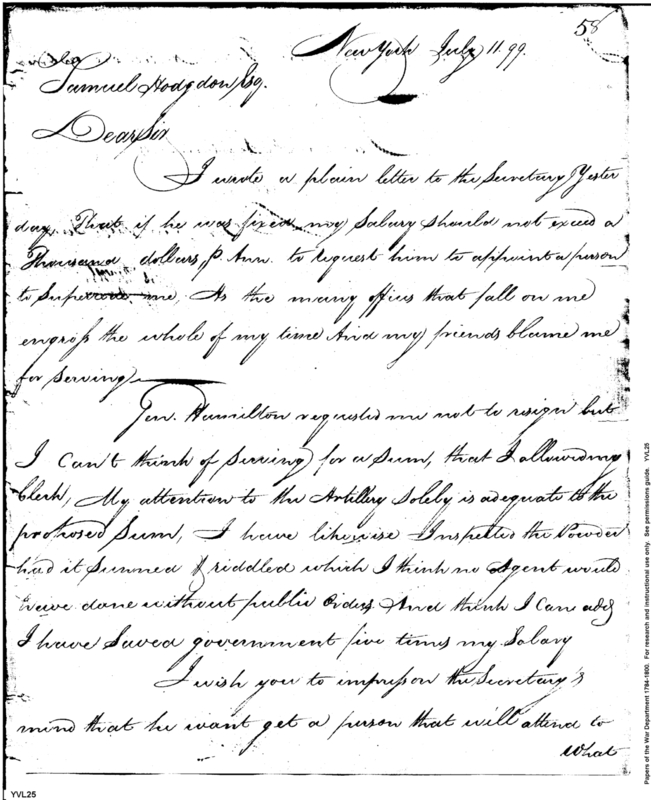 58
New York July 11. 99.
Samuel Hodgdon Esq.
Dear Sir
I wrote a plain letter to the Secretary Yester
day, That if he was fixed my Salary should not exceed a
Thousand dollars, P. Ann. to request him to appoint a person
to Supercede me, As the many offices that fall on me
engross the whole of my time And my friends blame me
for serving.
Gen. Hamilton requested me not to resign but
I Can't think of Serving for a Sum, that I allowed my
Clerk, My attention to the Artillery Solely is adequate to the
proposed Sum, I have likewise Inspected the Powder
had it Sunned & riddled which I think no Agent would
have done without public Orders. And think I Can add
I have Saved government five times my Salary
I wish you to impress on the Secretary's
mind that he wont get a person that will attend to
What
YVL25
Papers of the War Department 1784-1800. For research and instructional use only. See permissions guide. YVL25